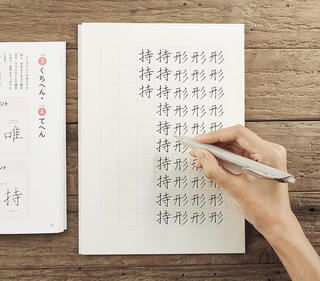 形形形形形形形形
形形形形形形形形形
形形形形形形形形形形
持持持持持持持持持持
持持持
③くちへん・④てへん
ント
唯
ント
持